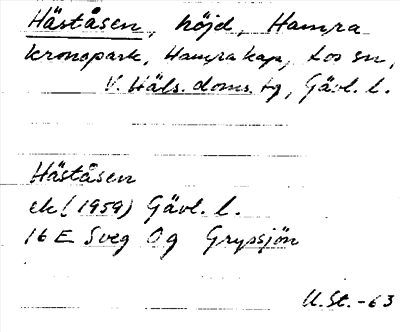 Häståsen, höjd, Hamra
kronopark, Hamra kap, Los sn,
V. Häls. doms. tg, Gävl. l.
Häståsen
ek (1959) Gävl. l.
16 E Sveg 0g Grypsjön
U.St. -63